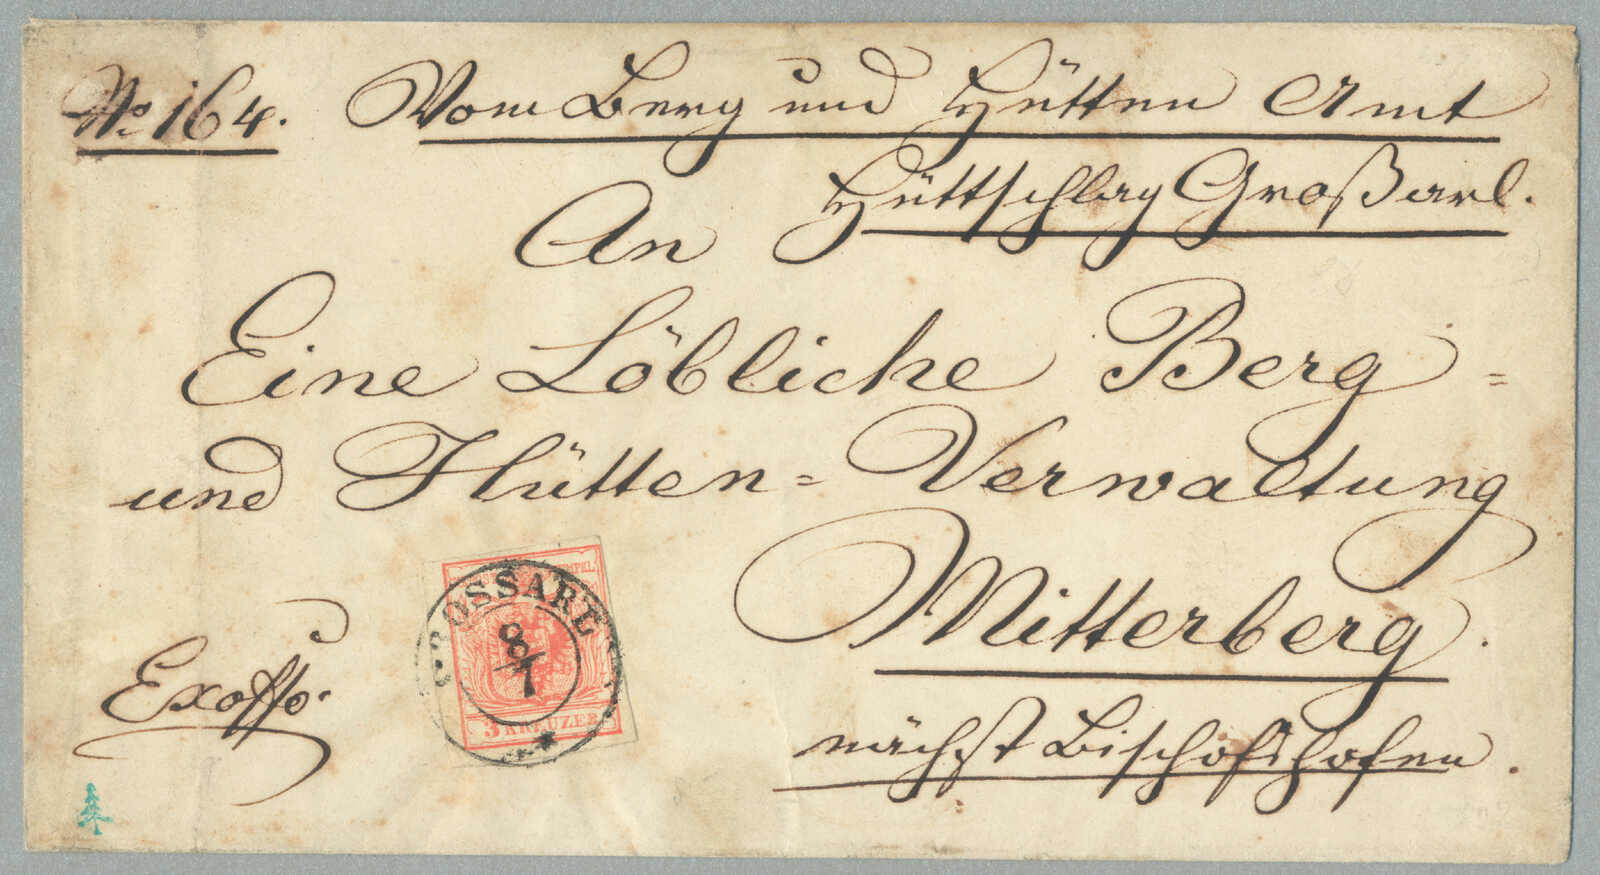 No 164. Vom Berg und Hütten Amt
Hüttschlag Großarl.
An
Eine Löbliche Berg=
und Hütten=Verwaltung
Mitterberg.
nächst Bischofshofen.
Exoffo.
GROSSARL
8/7
3 KREUZER